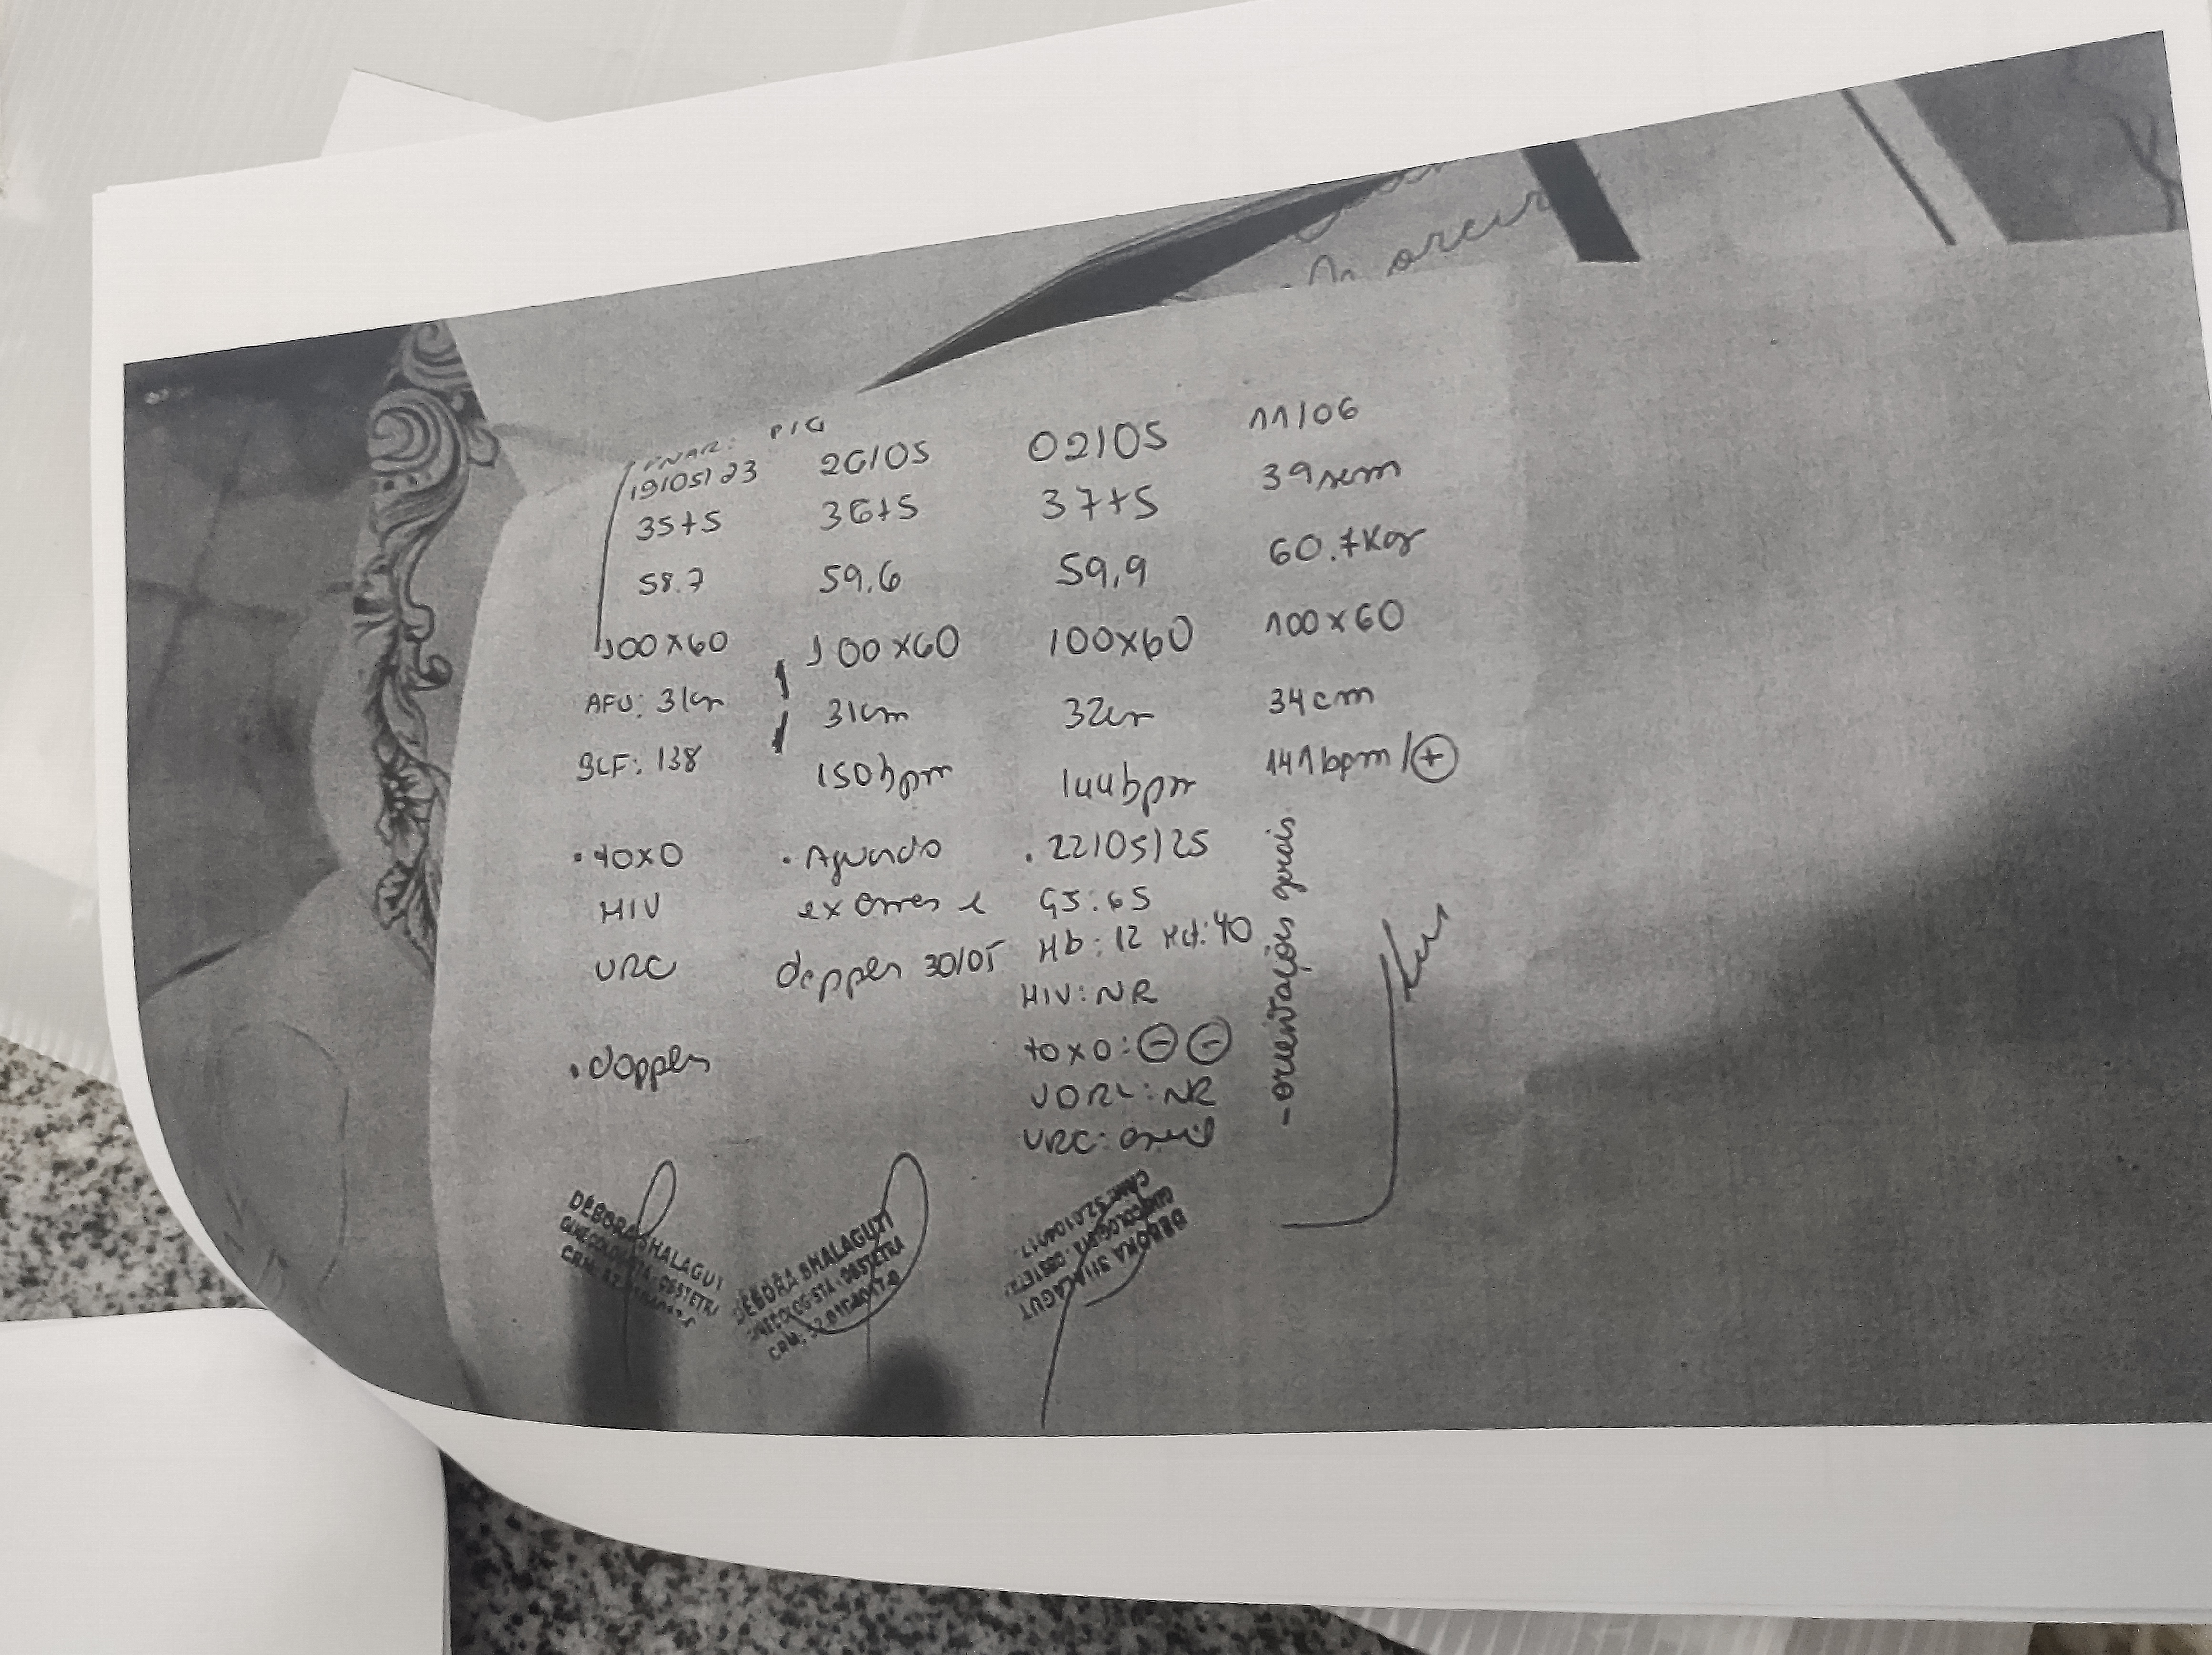 PNAR: PIG
19/05/23
35+5
58.7
100x60
AFU: 31cm
BCF: 138
• toxo
HIV
URC
• doppler
DEBORA SHALAGUTI
GINECOLOGISTA - OBSTETRA
26/05
36+5
59,6
100x60
31cm
150bpm
• Aguardo
exames e
doppler 30/05
DEBORA SHALAGUTI
GINECOLOGISTA - OBSTETRA
02/05
37+5
59,9
100x60
32cm
144bpm
• 22/05/25
GJ: 65
Hb: 12 Hct: 40
HIV: NR
toxo: ⊖ ⊖
VDRL: NR
URC:
DEBORA SHALAGUT
GINECOLOGISTA - OBSTETRA
11/06
39sem
60.7Kg
100x60
34cm
141bpm/⊕
- orientações gerais